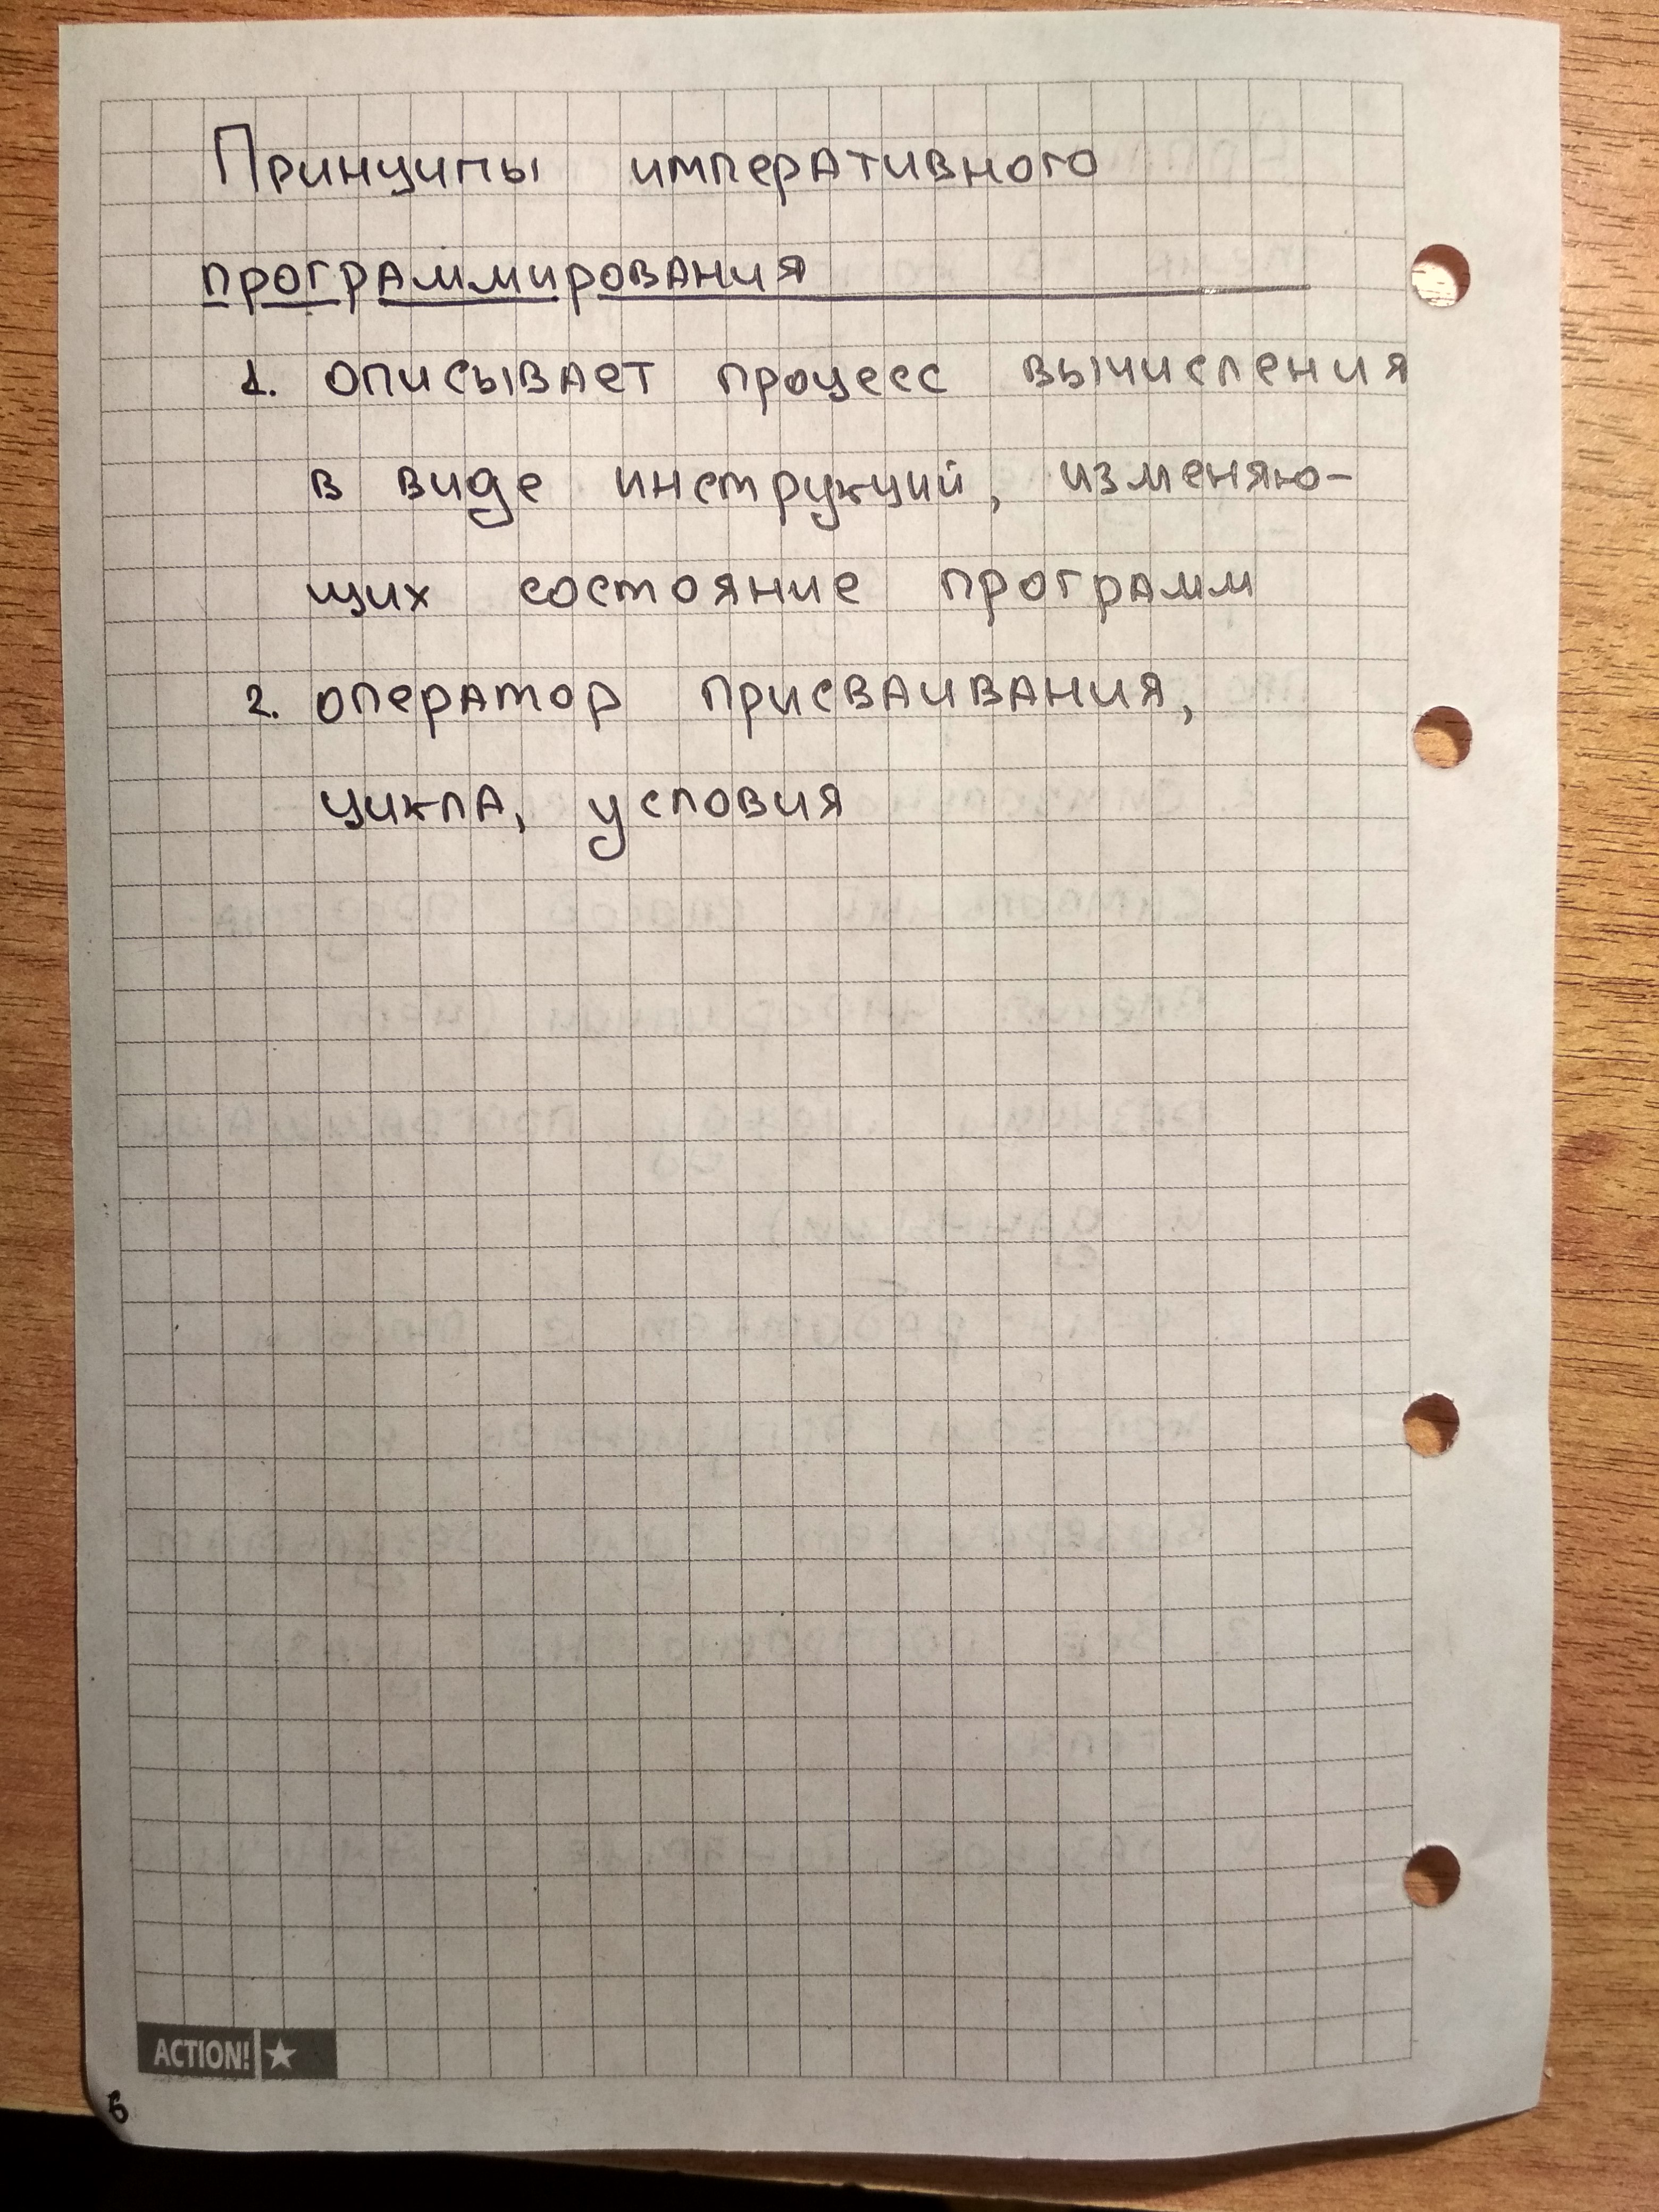 Принципы императивного
программирования
1. описывает процесс вычисления
в виде инструкций, изменяю-
щих состояние программ
2. оператор присваивания,
цикла, условия
ACTION!
6